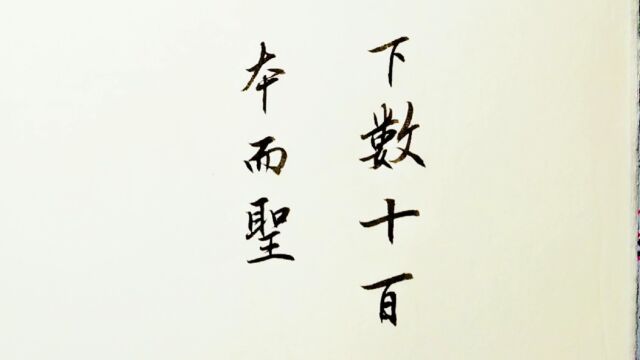 下數十百
本而聖